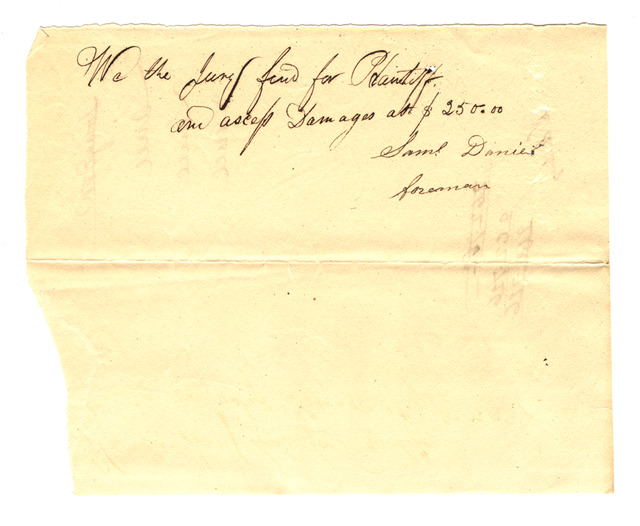 We the Jury find for Plaintiff.
and assess Damages at $250.00
Saml Daniel
foreman